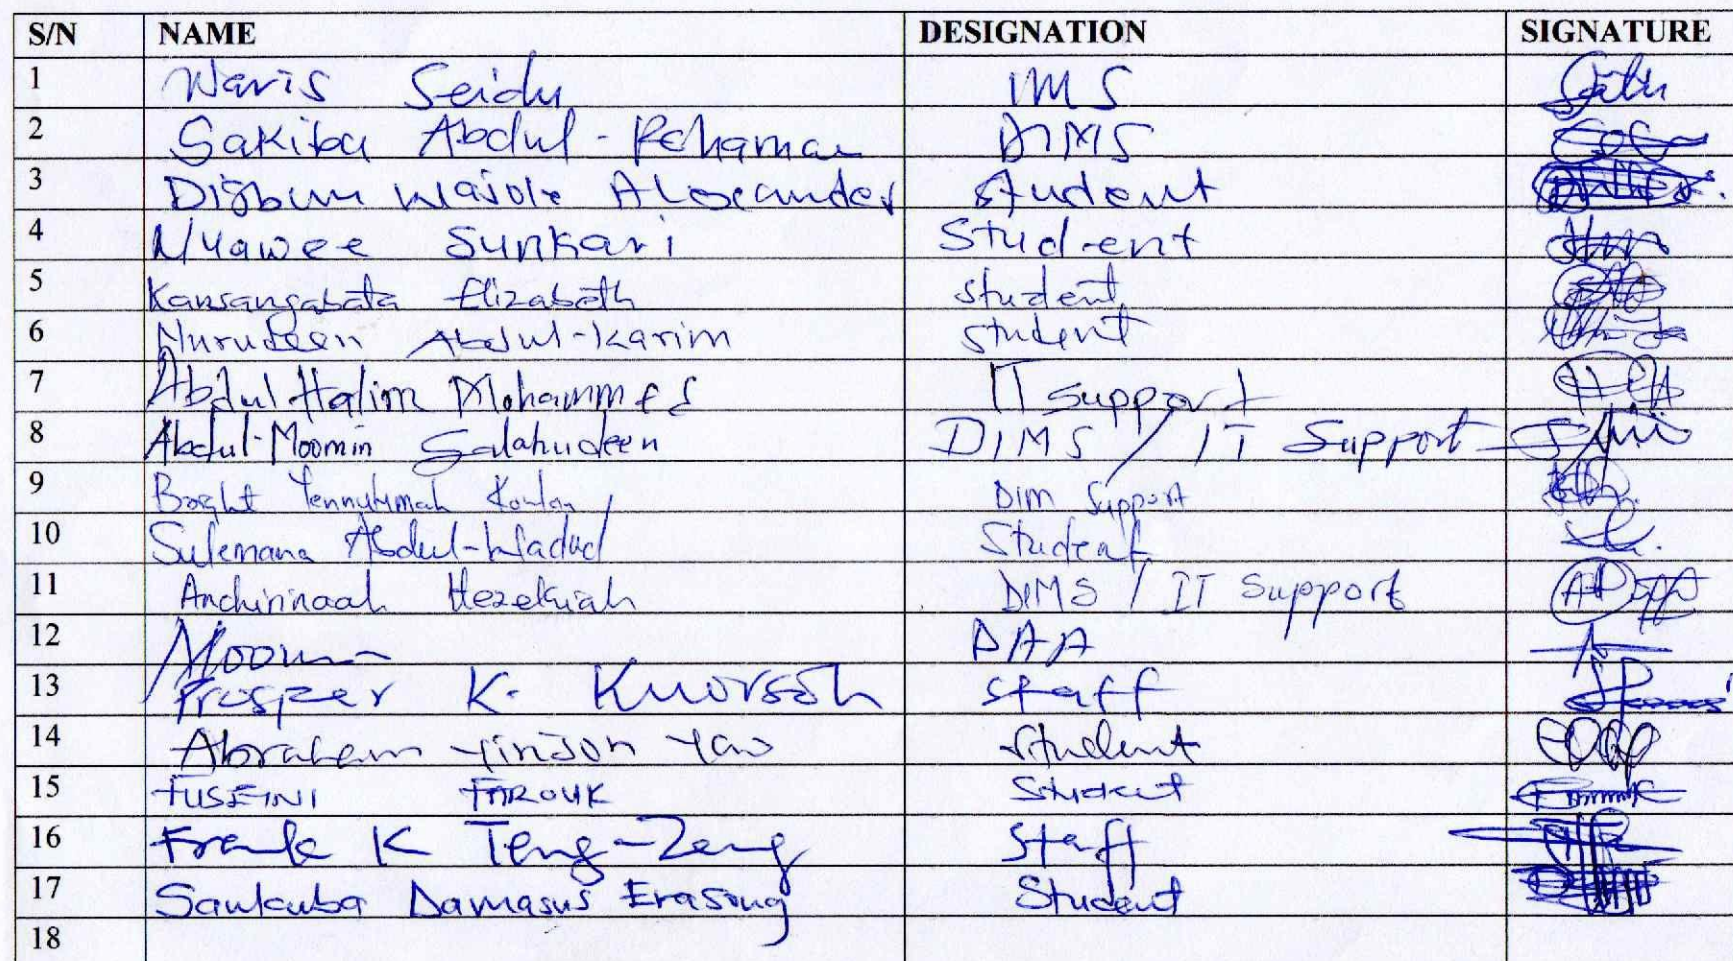 S/N NAME DESIGNATION SIGNATURE
1 Waris Seidu IMS
2 Sakiba Abdul-Rahaman DIMS
3 Alexander student
4 Nuawee Sunkari Student
5 Kansangabata Elizabeth student
6 Nurudeen Abdul-Karim student
7 Abdul Halim Mohammed IT support
8 Abdul-Moomin Salahudeen DIMS / IT Support
9 Bright DIM Support
10 Sulemana Abdul-Wadud Student
11 Anchirinaah Hezekiah DIMS / IT Support
12 DAA
13 Prosper K. Kuorsoh staff
14 Abraham Yinson Yaw student
15 FUSEINI FAROUK Student
16 Frank K Teng-Zeng Staff
17 Sankuba Damasus Erasung Student
18